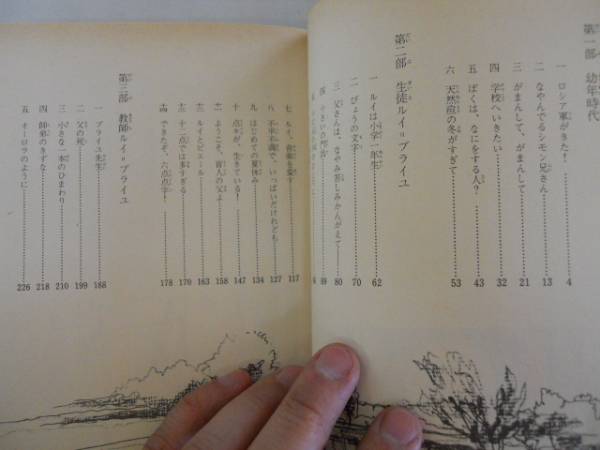 第一部 幼年時代
一 ロシア軍がきた! 4
二 なやんでるシモン兄さん 13
三 がまんして、がまんして 21
四 学校へいきたい 32
五 ぼくは、なにをする人? 43
六 天然痘の冬がすぎて 53
第二部 生徒ルイ=ブライユ
一 ルイは小学一年生 62
二 びょうの文字 70
三 父さんは、なやみ苦しみかんがえて 80
四 89
七 ルイ、音楽を愛す 117
八 不幸れ満で、いっぱいだけれども 127
九 はじめての夏休み 134
十 点々が、生きている! 147
十一 ようこそ、盲人の父よ 158
十二 ルイとピエール 163
十三 十二点では多すぎる 170
十四 できたぞ、六点点字! 178
第三部 教師ルイ=ブライユ
一 ブライユ先生 188
二 父の死 199
三 小さな一本のひまわり 210
四 師弟のきずな 218
五 オーロラのように 226